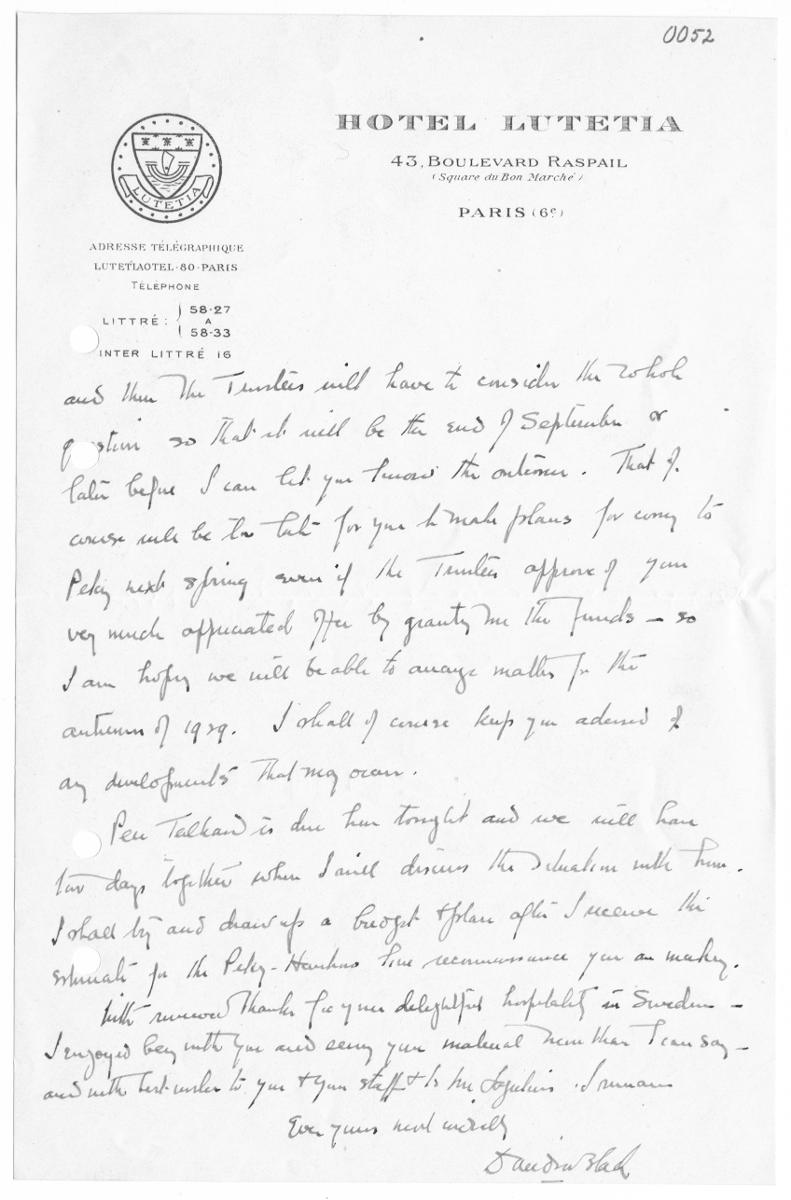 0052
HOTEL LUTETIA
43, BOULEVARD RASPAIL
(Square du Bon Marché)
PARIS (6e)
LUTETIA
ADRESSE TÉLÉGRAPHIQUE
LUTETIAOTEL-80-PARIS
TÉLÉPHONE
LITTRÉ : 58-27
A
58-33
INTER LITTRÉ 16
and then the Trustees will have to consider the whole
question so that it will be the end of September or
later before I can let you know the outcome. That of
course will be too late for you to make plans for coming to
Peking next spring even if the Trustees approve of your
very much appreciated offer by granting me the funds — so
I am hoping we will be able to arrange matters for the
autumn of 1929. I shall of course keep you advised of
any developments that may occur.
Pere Teilhard is due here tonight and we will have
two days together when I will discuss the situation with him.
I shall try and draw up a budget & plan after I receive the
estimate for the Peking-Hankow line reconnaissance you are making.
With renewed thanks for your delightful hospitality in Sweden —
I enjoyed being with you and seeing your material more than I can say —
and with best wishes to you & your staff & to I remain
Ever yours most cordially
Davidson Black